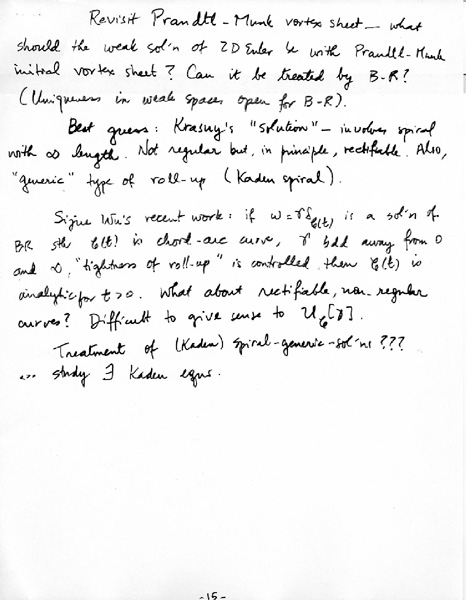 Revisit Prandtl-Munk vortex sheet — what
should the weak sol'n of 2D Euler be with Prandtl-Munk
initial vortex sheet? Can it be treated by B-R?
(Uniqueness in weak spaces open for B-R).
Best guess: Krasny's "solution" — involves spiral
with ∞ length. Not regular but, in principle, rectifiable. Also,
"generic" type of roll-up (Kaden spiral).
Sijue Wu's recent work: if ω = γδ_{C(t)} is a sol'n of
BR sth C(t) is chord-arc curve, γ bdd away from 0
and ∞, "tightness of roll-up" is controlled then C(t) is
analytic for t>0. What about rectifiable, non-regular
curves? Difficult to give sense to U_C[γ].
Treatment of (Kaden) spiral-generic-sol'ns ???
... study ∃ Kaden eqns.
-15-